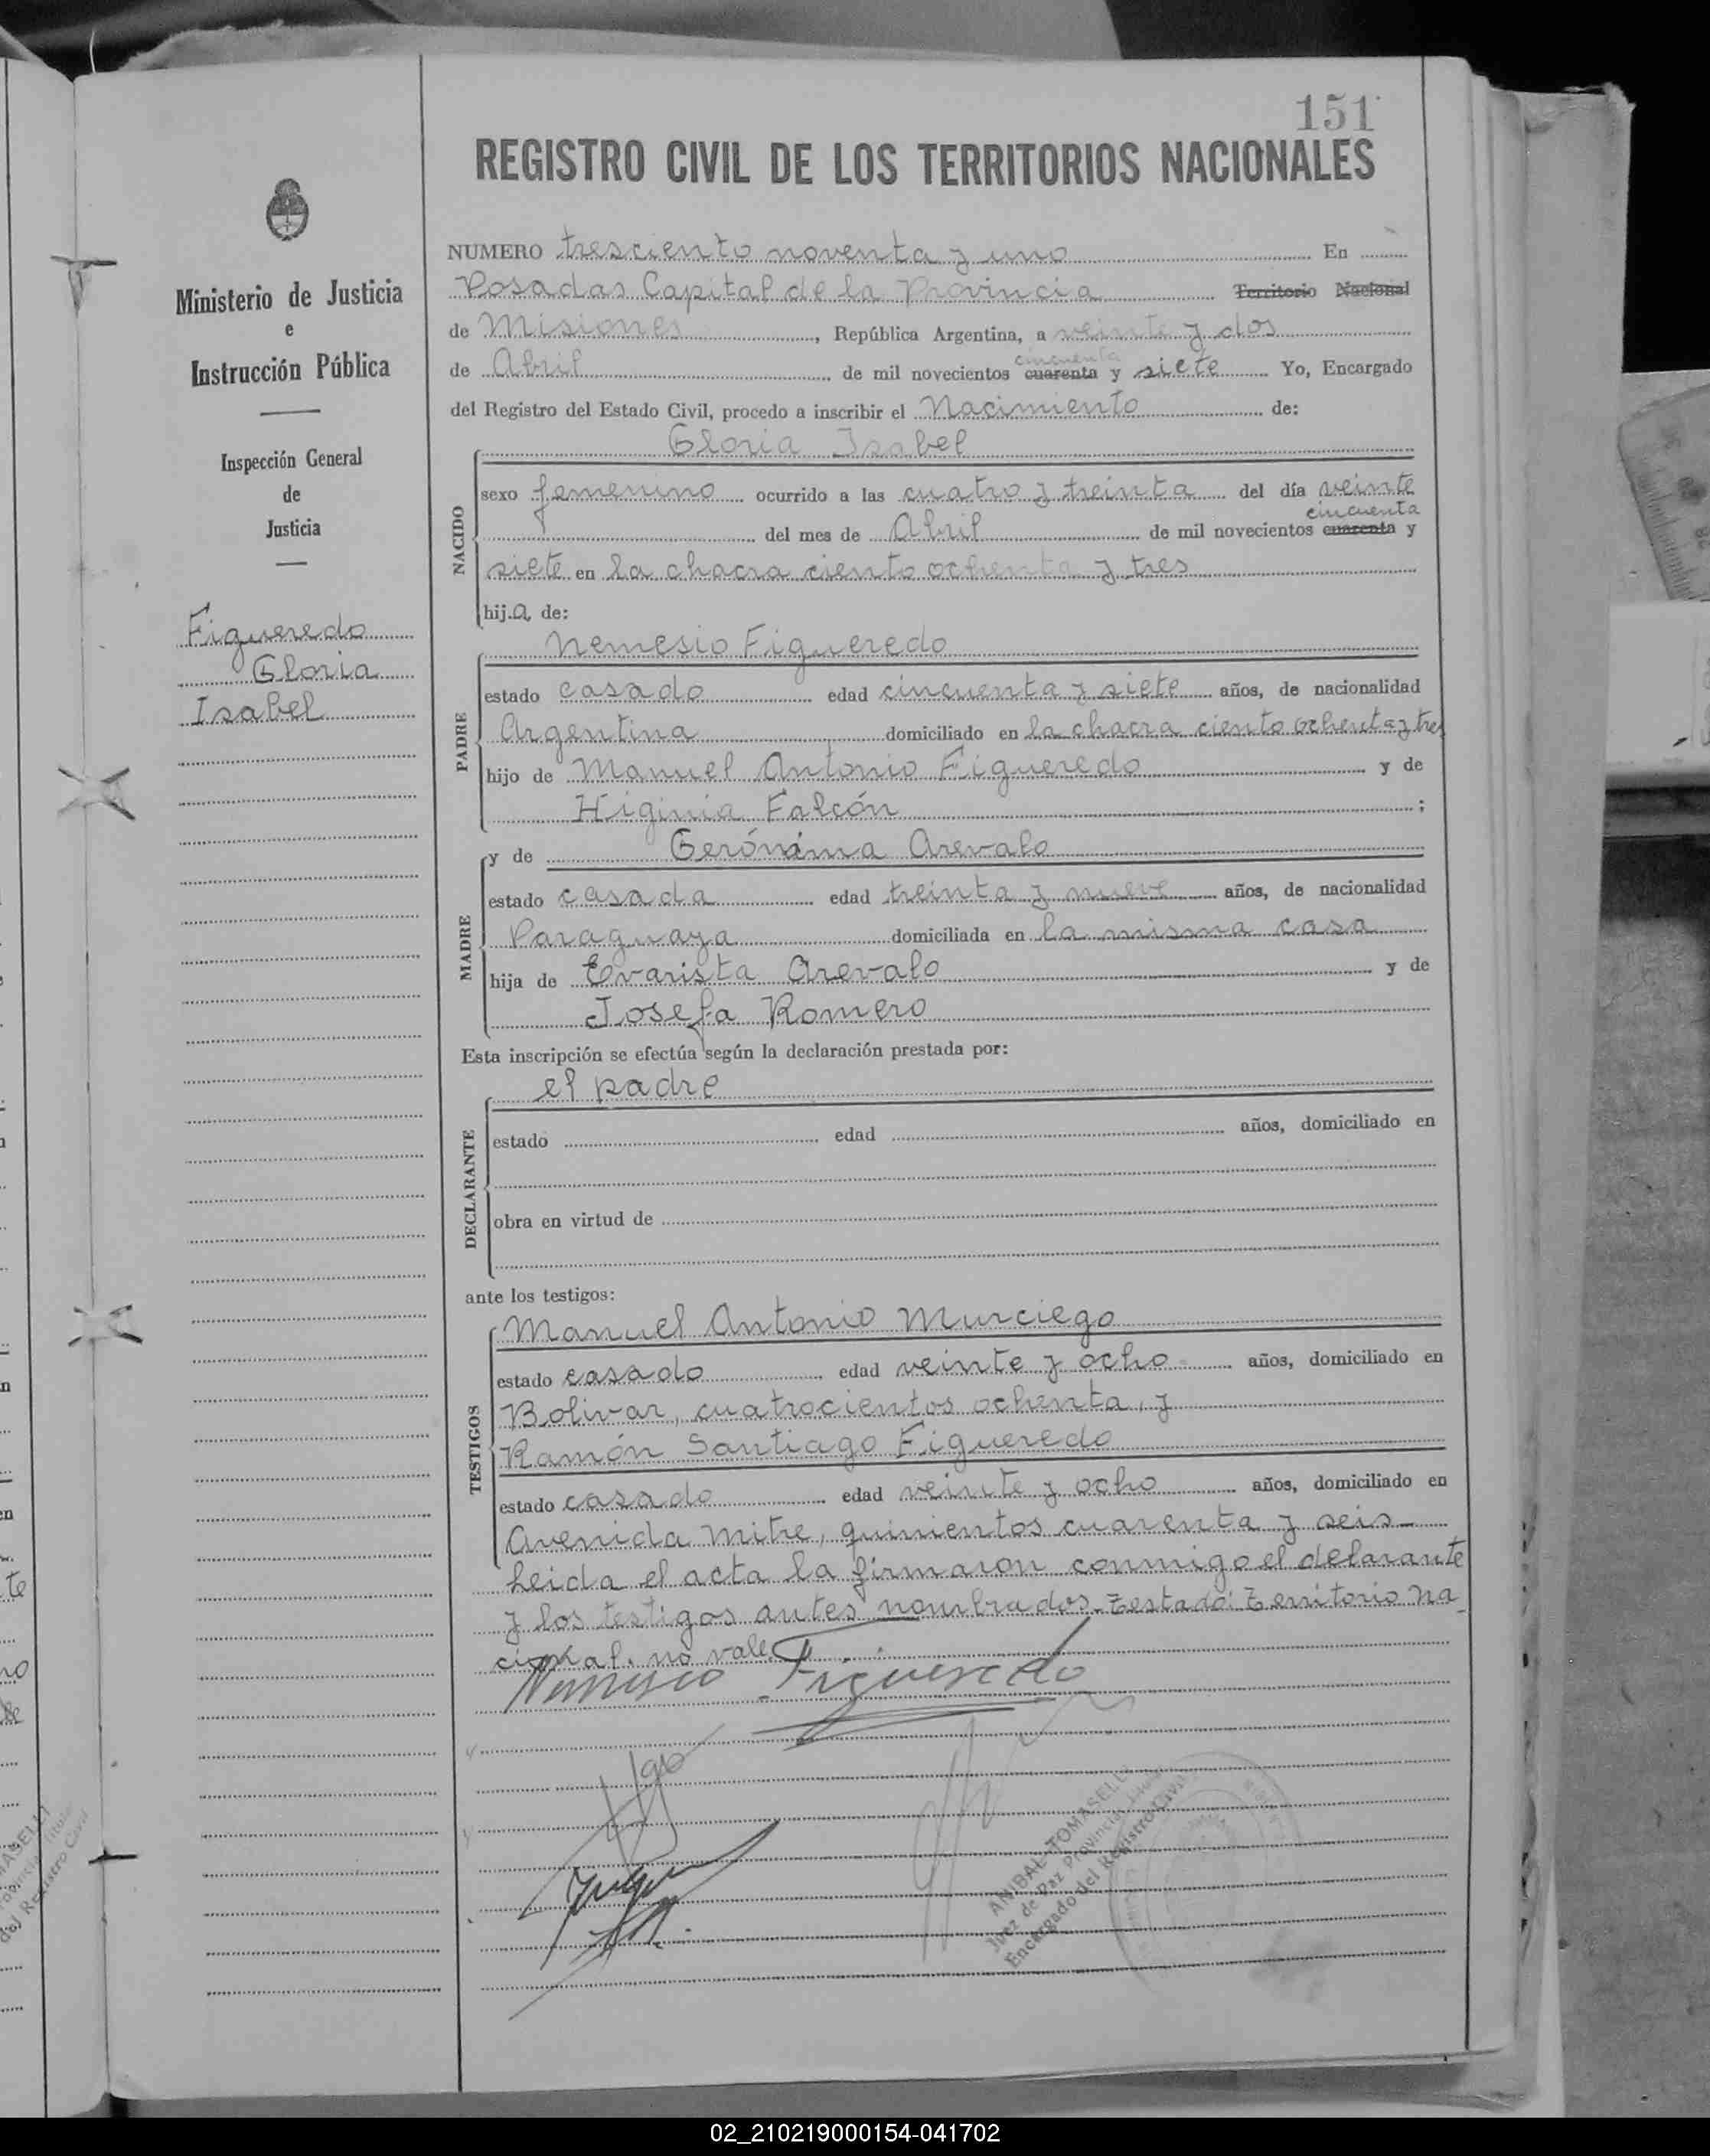 151
REGISTRO CIVIL DE LOS TERRITORIOS NACIONALES
Ministerio de Justicia
e
Instrucción Pública
Inspección General
de
Justicia
Figueredo
Gloria
Isabel
NUMERO tresciento noventa y uno En
Posadas Capital de la Provincia Territorio Nacional
de Misiones, República Argentina, a veinte y dos
de Abril de mil novecientos cuarenta cincuenta y siete Yo, Encargado
del Registro del Estado Civil, procedo a inscribir el Nacimiento de:
NACIDO
Gloria Isabel
sexo femenino ocurrido a las cuatro y treinta del día veinte
del mes de Abril de mil novecientos cuarenta cincuenta y
siete en la chacra ciento ochenta y tres
hija de:
PADRE
Nemesio Figueredo
estado casado edad cincuenta y siete años, de nacionalidad
Argentina domiciliado en la chacra ciento ochenta y tres
hijo de Manuel Antonio Figueredo y de
Higinia Falcón ;
MADRE
y de Gerónima Arevalo
estado casada edad treinta y nueve años, de nacionalidad
Paraguaya domiciliada en la misma casa
hija de Evarista Arevalo y de
Josefa Romero
Esta inscripción se efectúa según la declaración prestada por:
DECLARANTE
el padre
estado edad años, domiciliado en
obra en virtud de
ante los testigos:
TESTIGOS
Manuel Antonio Murciego
estado casado edad veinte y ocho años, domiciliado en
Bolivar, cuatrocientos ochenta, y
Ramón Santiago Figueredo
estado casado edad veinte y ocho años, domiciliado en
Avenida Mitre, quinientos cuarenta y seis_
Leida el acta la firmaron conmigo el delarante
y los testigos antes nombrados_Testado: Territorio Na_
cional. no vale.
Nemesio Figueredo
ANIBAL TOMASELLI
Juez de Paz Provincial
Encargado del Registro Civil
02_210219000154-041702